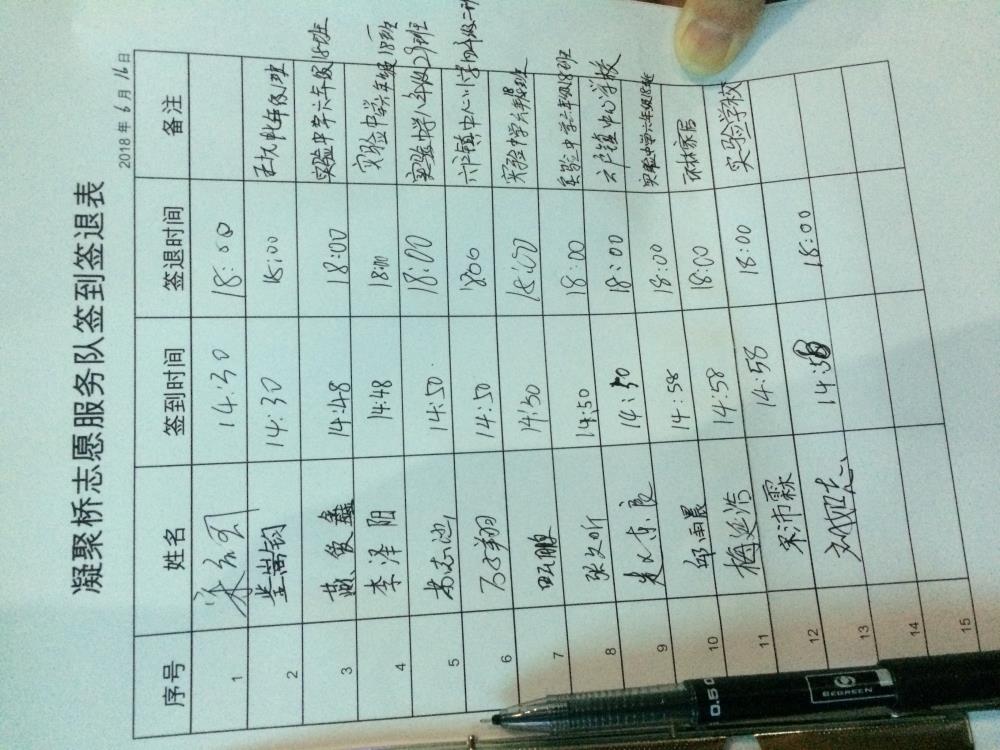 凝聚桥志愿服务队签到签退表
2018年6月16日
序号 姓名 签到时间 签退时间 备注
1 14:30 18:00
2 14:30 18:00
3 燕俊鑫 14:48 18:00 实验中学六年级18班
4 李泽阳 14:48 18:00 实验中学六年级18班
5 尚志池 14:50 18:00 实验中学八年级29班
6 14:50 1800 六户镇中心小学四年级二班
7 鹏 14:50 18:00 实验中学六年级18班
8 张文昕 14:50 18:00 实验中学六年级18班
9 14:50 18:00 六户镇中心学校
10 邱雨晨 14:58 18:00 实验中学六年级18班
11 梅延浩 14:58 18:00
12 宋沛霖 14:58 18:00 实验学校
13 18:00
14
15
0.5
BEGREEN